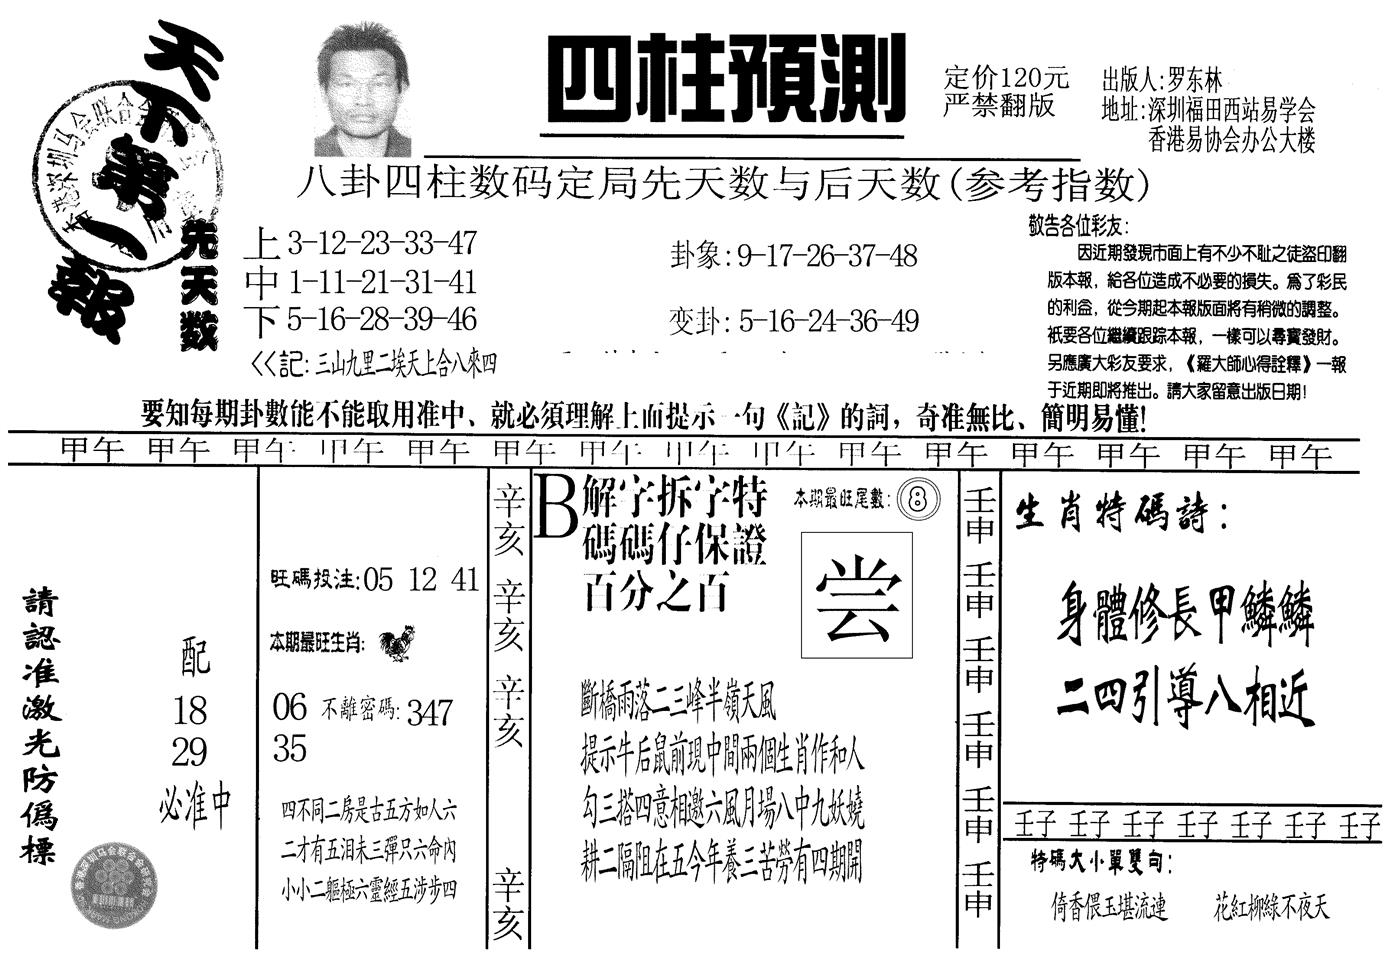 天下第一報
四柱預測
定价120元
严禁翻版
出版人:罗东林
地址:深圳福田西站易学会
香港易协会办公大楼
八卦四柱数码定局先天数与后天数(参考指数)
先天数
上 3-12-23-33-47
中 1-11-21-31-41
下 5-16-28-39-46
<<記:三山九里二埃天上合八來四
卦象:9-17-26-37-48
变卦:5-16-24-36-49
敬告各位彩友:
因近期發現市面上有不少不耻之徒盜印翻
版本報，給各位造成不必要的損失。爲了彩民
的利益，從今期起本報版面將有稍微的調整。
衹要各位繼續跟踪本報，一樣可以尋寶發財。
另應廣大彩友要求，《羅大師心得詮釋》一報
于近期即將推出。請大家留意出版日期！
要知每期卦數能不能取用准中、就必須理解上面提示一句《記》的詞，奇准無比、簡明易懂！
甲午 甲午 甲午 甲午 甲午 甲午 甲午 甲午 甲午 甲午 甲午 甲午 甲午 甲午 甲午
請認准激光防僞標
配
18
29
必准中
旺碼投注:05 12 41
本期最旺生肖:
06 不離密碼:347
35
四不同二房是古五方如人六
二才有五泪未三彈只六命內
小小二軀極六靈經五涉步四
辛亥 辛亥 辛亥 辛亥
B解字拆字特
碼碼仔保證
百分之百
本期最旺尾數:8
尝
斷橋雨落二三峰半嶺天風
提示牛后鼠前現中間兩個生肖作和人
勾三搭四意相邀六風月場八中九妖嬈
耕二隔阻在五今年養三苦勞有四期開
壬申 壬申 壬申 壬申 壬申 壬申
生肖特碼詩:
身體修長甲鱗鱗
二四引導八相近
壬子 壬子 壬子 壬子 壬子 壬子 壬子
特碼大小單雙句:
倚香偎玉堪流連 花紅柳綠不夜天